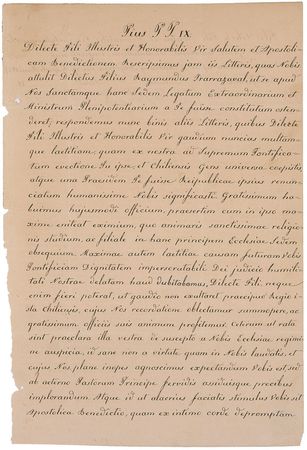 Pius P.P. IX.
Dilecte Fili Illustris et Honorabilis Vir Salutem et Apostoli-
cam Benedictionem Rescripsimus jam iis Litteris, quas Nobis
attulit Dilectus Filius Raymundus Irarrazaval, ut se apud
Nos Sanctamque hanc Sedem Legatum Extraordinarium et
Ministrum Plenipotentiarium a Te fuisse constitutum osten-
deret; respondemus nunc binis aliis Litteris, quibus Dilecte
Fili Illustris et Honorabilis Vir gaudium nuncias multam-
que laetitiam, quam ex nostra ad Supremum Pontifica-
tum evectione Tu ipse, et Chilensis Gens universa coepistis,
atque una Praesidem Te fuisse Reipublicae ipsius renun-
ciatum humanissime Nobis significasti. Gratissimum ha-
buimus hujusmodi officium, praesertim cum in ipso ma-
xime eniteat eximium, quo animaris sanctissimae religio-
nis studium, ac filiale in hanc principem Ecclesiae Sedem
obsequium. Maximae autem laetitiae causam futuram Vobis
Pontificiam Dignitatem imperscrutabili Dei judicio humili-
tati Nostrae delatam haud dubitabamus, Dilecte Fili, neque
enim fieri poterat, ut gaudio non exultaret praecipuo Regio i-
sta Chilensis, cujus Nos recordatione oblectamur summopere, ac
gratissimum officiis suis animum profitemur. Ceterum ut rata
sint praeclara illa vestra de suscepto a Nobis Ecclesiae regimi-
ne auspicia, id sane non a virtute, quam in Nobis laudatis, et
cujus Nos plane inopes agnoscimus expectandum Vobis est sed
ab aeterno Pastorum Principe fervidis assiduisque precibus
implorandum Atque id ut alacrius faciatis stimulus Vobis sit
Apostolica Benedictio, quam ex intimo corde depromptam